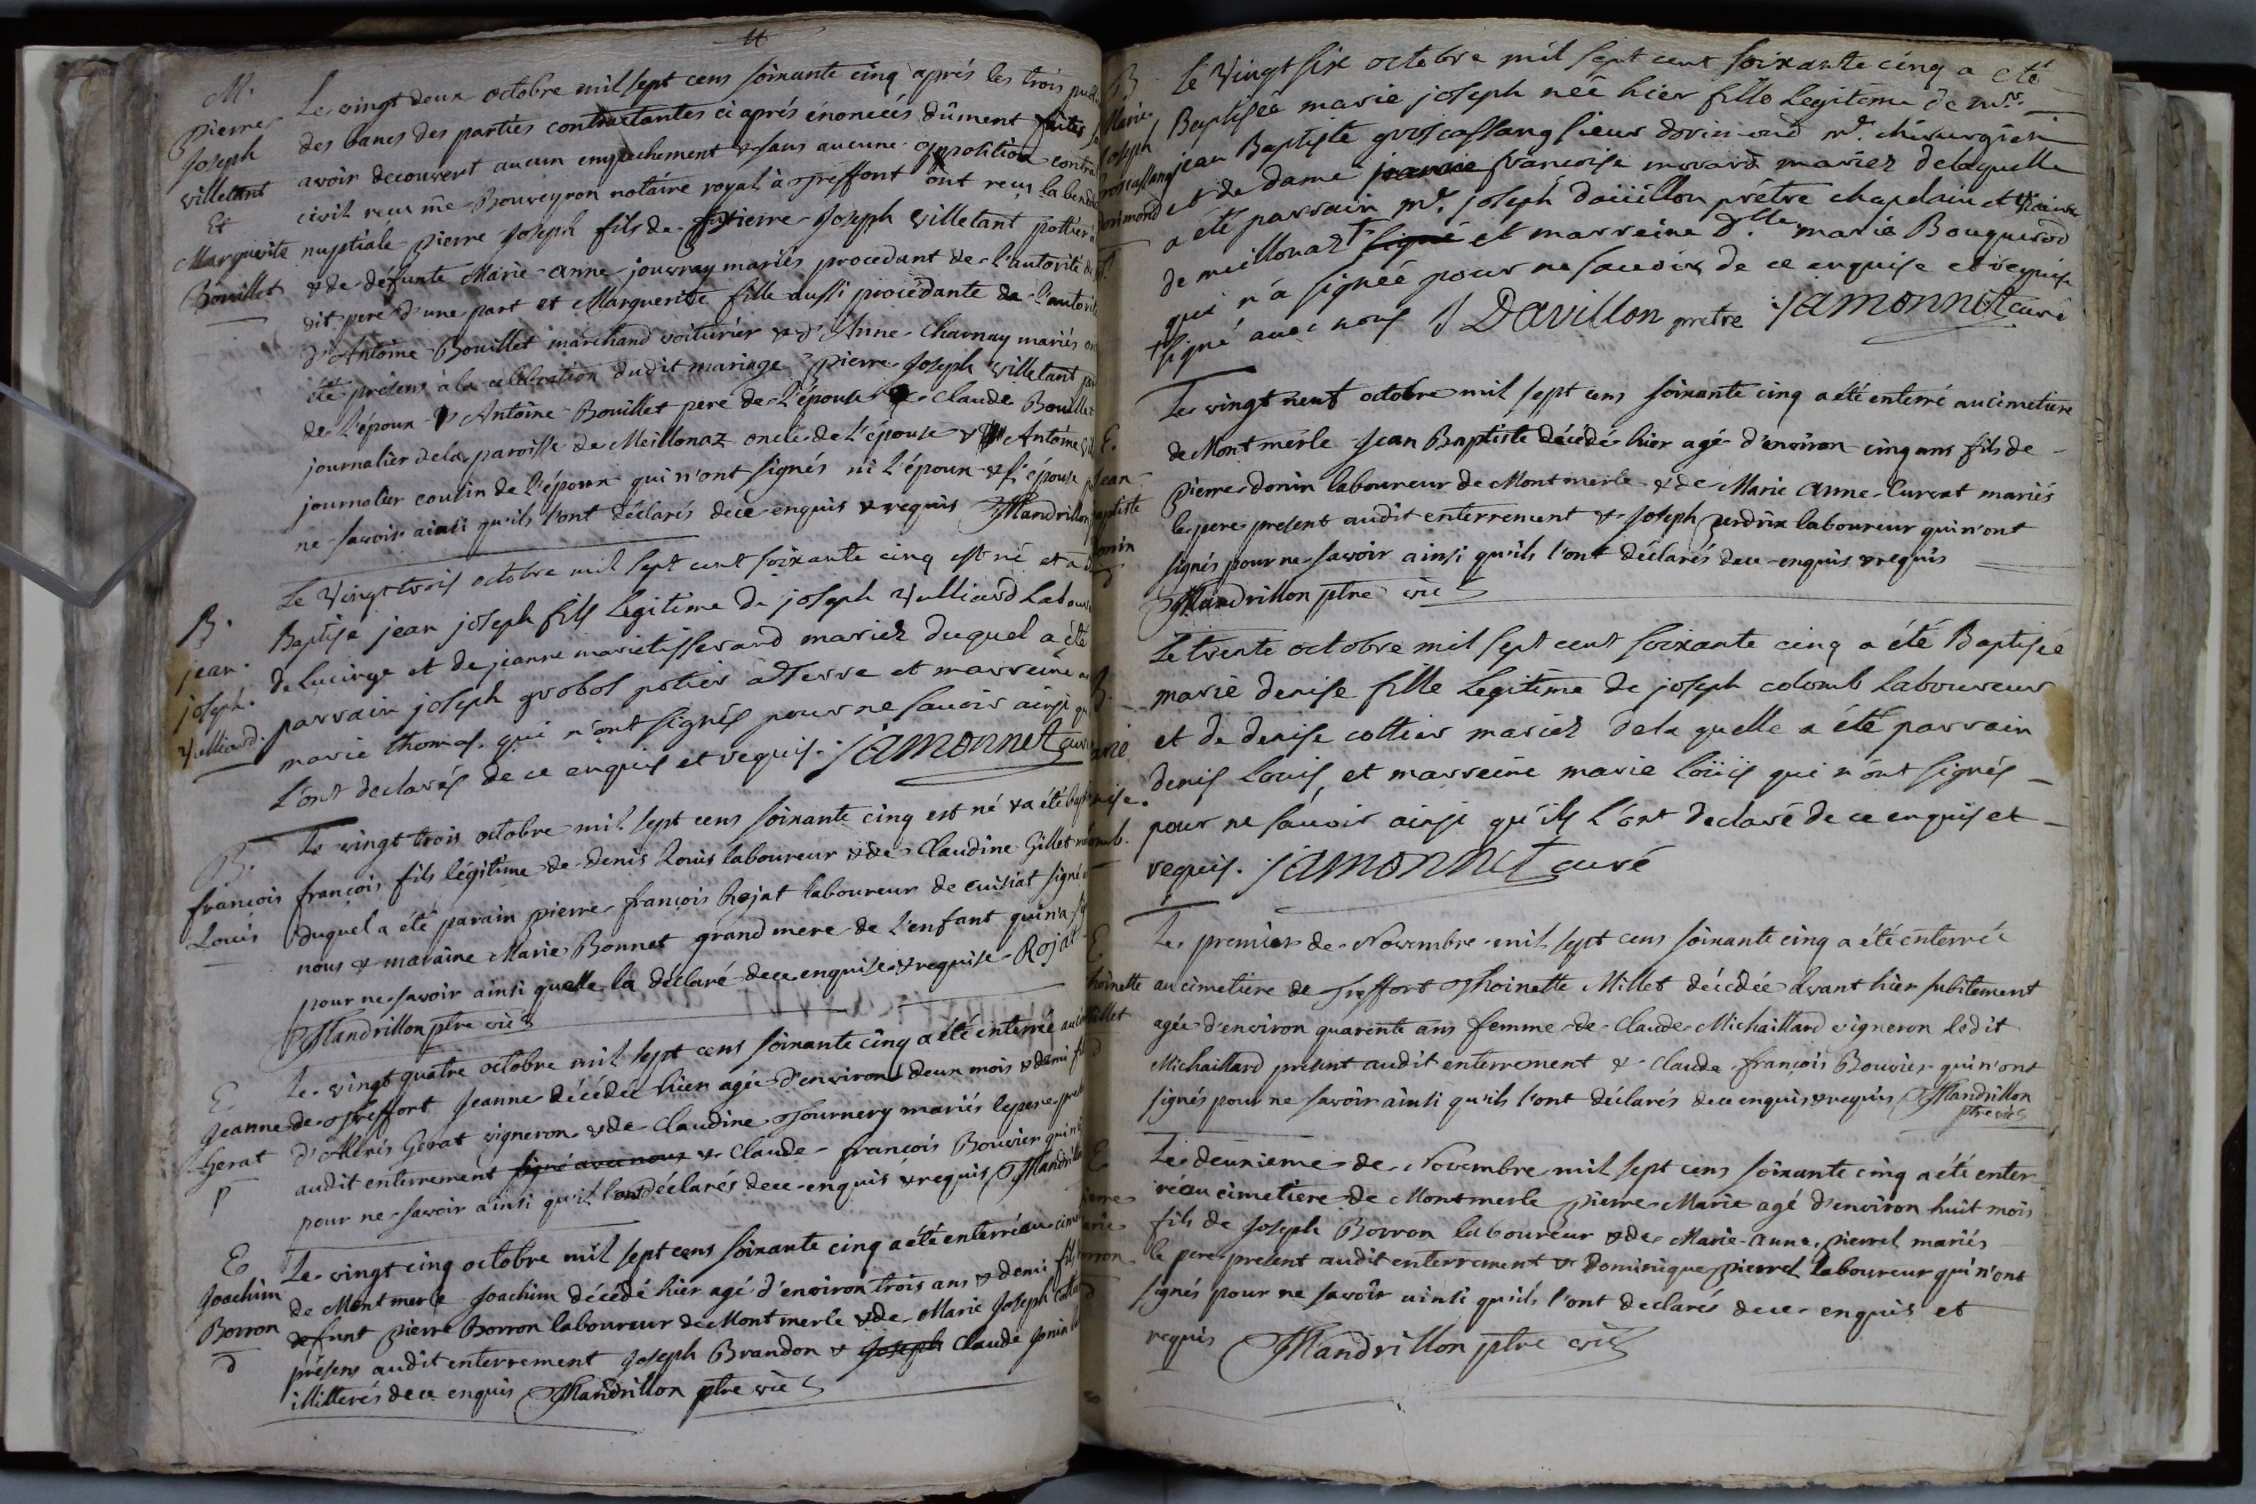 M.
Pierre
Joseph
villetant
Et
Marguerite
Bouillet
Le vingt deux octobre mil sept cens soixante cinq aprés les trois
des bancs des parties contractantes ci aprés énoncées dûment faites
avoir decouvert aucun empechement & sans aucune opposition contrat
civil reçu me Bouveyron notaire royal à Treffort ont reçu la
nuptiale pierre Joseph fils de pierre Joseph villetant pottier
& de défunte Marie-anne jouvray mariés procedant de l'autorité
dit pere d'une part et Marguerite fille aussi procédante de l'autorité
d'Antoine Bouillet marchand voiturier & d'Anne Charnay mariés
été présens à la celebration dudit mariage pierre Joseph villetant
de l'époux & Antoine Bouillet pere de l'épouse Claude Bouillet
journalier de la paroisse de Meillonaz oncle de l'épouse & Antoine
journalier cousin de l'époux qui n'ont signés ni l'époux & l'épouse
ne savoir ainsi qu'ils l'ont déclarés de ce enquis & requis Mandrillon
B.
jean
joseph
Vulliard
Le Vingt trois octobre mil sept cent soixante cinq est né et a
Baptisé jean joseph fils Legitime de joseph Vulliard
de Lucinge et de jeanne marie tisserand mariez duquel a été
parrain joseph grobos potier à Terre et marreine
marie thomas qui n'ont signés pour ne savoir ainsi
L'ont declarés de ce enquis et requis. jamonnet curé
B.
françois
Louis
Le vingt trois octobre mil sept cens soixante cinq est né & a été
françois fils légitime de Denis Louis laboureur & de Claudine Gillet
duquel a été parain pierre françois Rojat laboureur de cuisiat signé
nous & maraine Marie Bonnet grand mere de l'enfant qui n'a
pour ne savoir ainsi quelle la déclaré de ce enquise & requise Rojat
Mandrillon ptre vic
E.
Jeanne
Gerat
p
Le vingt quatre octobre mil sept cens soixante cinq a été enterrée
de Treffort Jeanne décédée hier agée d'environ deux mois & demi
d'Alexis Gerat vigneron & de Claudine Tournery mariés le pere
audit enterrement signé avec nous & Claude françois Bouvier
pour ne savoir ainsi qu'il l'ont déclarés de ce enquis & requis Mandrillon
E
Joachim
Borron
d
Le vingt cinq octobre mil sept cens soixante cinq a été enterré au
de Montmerle Joachim décédé hier agé d'environ trois ans & demi
defunt pierre Borron laboureur de Montmerle & de Marie Joseph
présens audit enterrement Joseph Brandon & Joseph Claude Jonin
illitterés de ce enquis Mandrillon ptre vic
B
Marie
Joseph
groscassang
dorimond
Le Vingt six octobre mil sept cent soixante cinq a été
Baptisée marie joseph née hier fille Legitime de
jean Baptiste groscassang sieur dorimond me. chirurgien
et de dame françoise morard mariez de laquelle
a été parrain mr. joseph daüillon prêtre chapelain et
de meillonaz + signé et marreine Dlle. marie Bouquerod
qui n'a signée pour ne savoir de ce enquise et requise
+ signé avec nous J Davillon pretre jamonnet curé
E.
jean
Baptiste
Donin
Le vingt neuf octobre mil sept cens soixante cinq a été enterré au cimetiere
de Montmerle Jean Baptiste décédé hier agé d'environ cinq ans fils de
pierre donin laboureur de Montmerle & de Marie anne Curvat mariés
le pere present audit enterrement & Joseph perdrix laboureur qui n'ont
signés pour ne savoir ainsi qu'ils l'ont déclarés de ce enquis & requis
Mandrillon ptre vic
Le trente octobre mil sept cent soixante cinq a été Baptisée
marie denise fille Legitime de joseph colomb Laboureur
et de denise cottier mariez de la quelle a été parrain
denis Louis, et marreine marie Loüis qui n'ont signés
pour ne savoir ainsi qu'ils L'ont declaré de ce enquis et
requis. jamonnet curé
E
thoinette
Millet
Le premier de Novembre mil sept cens soixante cinq a été enterrée
au cimetiere de Treffort Thoinette Millet décédée avant hier subitement
agée d'environ quarente ans femme de Claude Michaillard vigneron ledit
Michaillard présent audit enterrement & Claude françois Bouvier qui n'ont
signés pour ne savoir ainsi qu'ils l'ont déclarés de ce enquis & requis Mandrillon
ptre vic
E
pierre
Marie
Borron
Le deuxieme de Novembre mil sept cens soixante cinq a été enter
ré au cimetiere de Montmerle pierre Marie agé d'environ huit mois
fils de Joseph Borron laboureur & de Marie-anne pierrel mariés
le pere présent audit enterrement & Dominique pierrel laboureur qui n'ont
signés pour ne savoir ainsi qu'ils l'ont declarés de ce enquis et
requis Mandrillon ptre vic